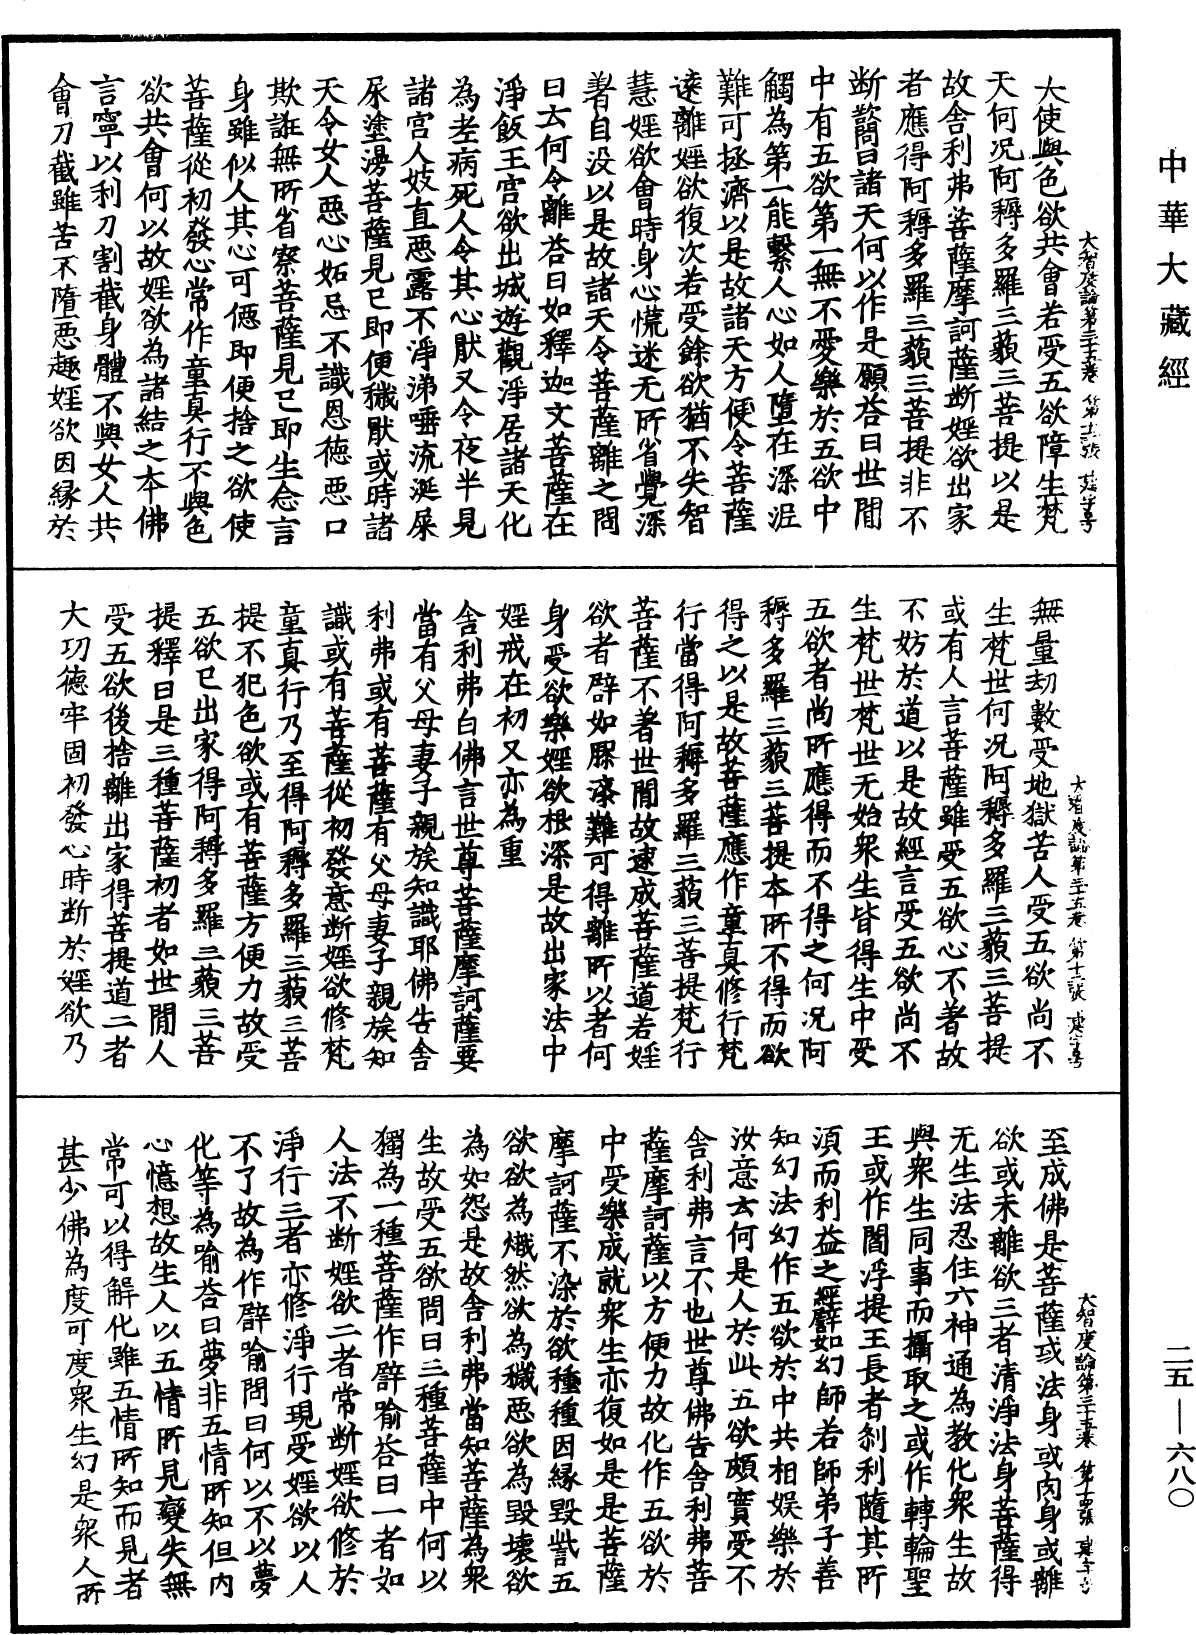 中華大藏經
二五—六八〇
大智度論第三十五卷 第十二張
大使與色欲共會若受五欲障生梵
天何况阿耨多羅三藐三菩提以是
故舍利弗菩薩摩訶薩断婬欲出家
者應得阿耨多羅三藐三菩提非不
断問曰諸天何以作是願荅曰世間
中有五欲第一無不愛樂於五欲中
觸為第一能繫人心如人墮在深泥
難可拯濟以是故諸天方便令菩薩
遠離婬欲復次若受餘欲猶不失智
慧婬欲會時身心慌迷无所省覺深
著自没以是故諸天令菩薩離之問
曰云何令離荅曰如釋迦文菩薩在
淨飯王宮欲出城遊觀淨居諸天化
為老病死人令其心猒又令夜半見
諸宮人妓直惡露不淨涕唾流涎屎
尿塗漫菩薩見已即便穢猒或時諸
天令女人惡心妬忌不識恩德惡口
欺誑無所省察菩薩見已即生念言
身雖似人其心可惡即便捨之欲使
菩薩從初發心常作童真行不與色
欲共會何以故婬欲為諸結之本佛
言寧以利刀割截身體不與女人共
會刀截雖苦不墮惡趣婬欲因緣於
大智度論第三十五卷 第十三張
無量劫數受地獄苦人受五欲尚不
生梵世何况阿耨多羅三藐三菩提
或有人言菩薩雖受五欲心不著故
不妨於道以是故經言受五欲尚不
生梵世梵世无始衆生皆得生中受
五欲者尚所應得而不得之何况阿
耨多羅三藐三菩提本所不得而欲
得之以是故菩薩應作童真修行梵
行當得阿耨多羅三藐三菩提梵行
菩薩不著世間故速成菩薩道若婬
欲者辟如膠漆難可得離所以者何
身受欲樂婬欲根深是故出家法中
婬戒在初又亦為重
舍利弗白佛言世尊菩薩摩訶薩要
當有父母妻子親族知識耶佛告舍
利弗或有菩薩有父母妻子親族知
識或有菩薩從初發意断婬欲修梵
童真行乃至得阿耨多羅三藐三菩
提不犯色欲或有菩薩方便力故受
五欲已出家得阿耨多羅三藐三菩
提釋曰是三種菩薩初者如世間人
受五欲後捨離出家得菩提道二者
大功德牢固初發心時断於婬欲乃
大智度論第三十五卷 第十四張
至成佛是菩薩或法身或肉身或離
欲或未離欲三者清淨法身菩薩得
无生法忍住六神通為教化衆生故
與衆生同事而攝取之或作轉輪聖
王或作閻浮提王長者刹利隨其所
須而利益之經譬如幻師若師弟子善
知幻法幻作五欲於中共相娛樂於
汝意云何是人於此五欲頗實受不
舍利弗言不也世尊佛告舍利弗菩
薩摩訶薩以方便力故化作五欲於
中受樂成就衆生亦復如是是菩薩
摩訶薩不染於欲種種因緣毀訾五
欲欲為熾然欲為穢惡欲為毀壞欲
為如怨是故舍利弗當知菩薩為衆
生故受五欲問曰三種菩薩中何以
獨為一種菩薩作辟喻荅曰一者如
人法不断婬欲二者常断婬欲修於
淨行三者亦修淨行現受婬欲以人
不了故為作辟喻問曰何以不以夢
化等為喻荅曰夢非五情所知但内
心憶想故生人以五情所見變失無
常可以得解化雖五情所知而見者
甚少佛為度可度衆生幻是衆人所